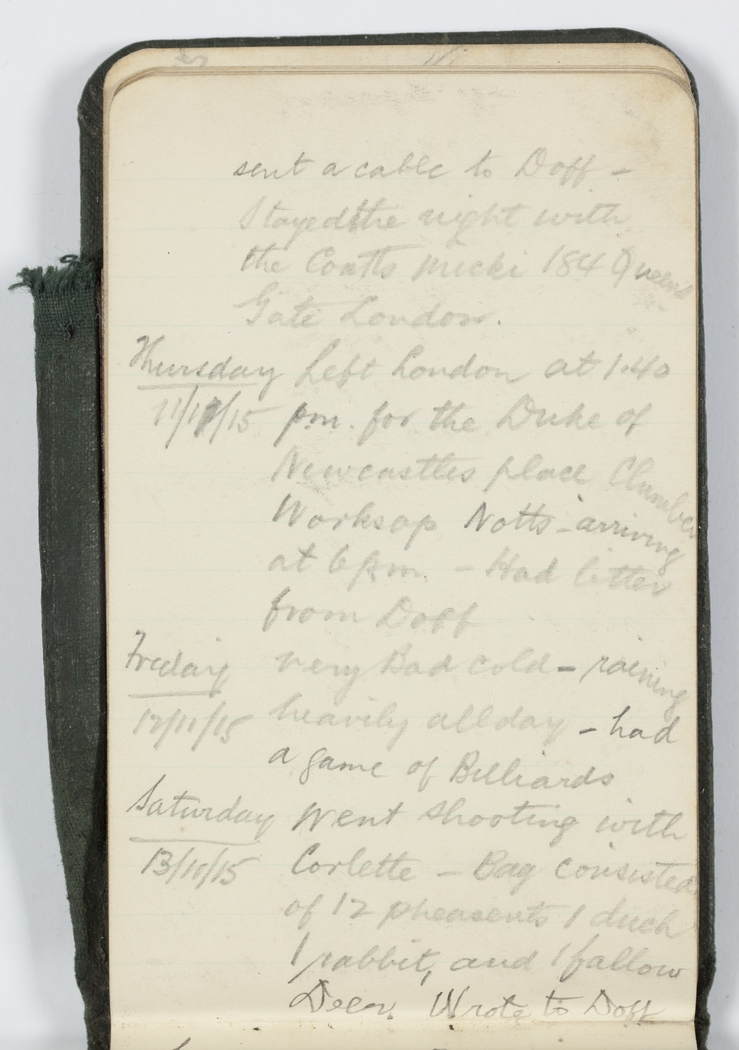 sent a cable to Doff -
Stayed the night with
the Coatts Micki 184 Queen's
Gate London.
Thursday Left London at 1.40
11/11/15 pm. for the Duke of
Newcastles place Clumber
Worksop Notts - arriving
at 6 pm. - Had letter
from Doff
Friday very Bad cold - raining
12/11/15 heavily all day - had
a game of Billiards
Saturday Went shooting with
13/11/15 Corlette - Bag consisted
of 12 pheasents 1 duck
1 rabbit, and 1 fallow
Deer. Wrote to Doff